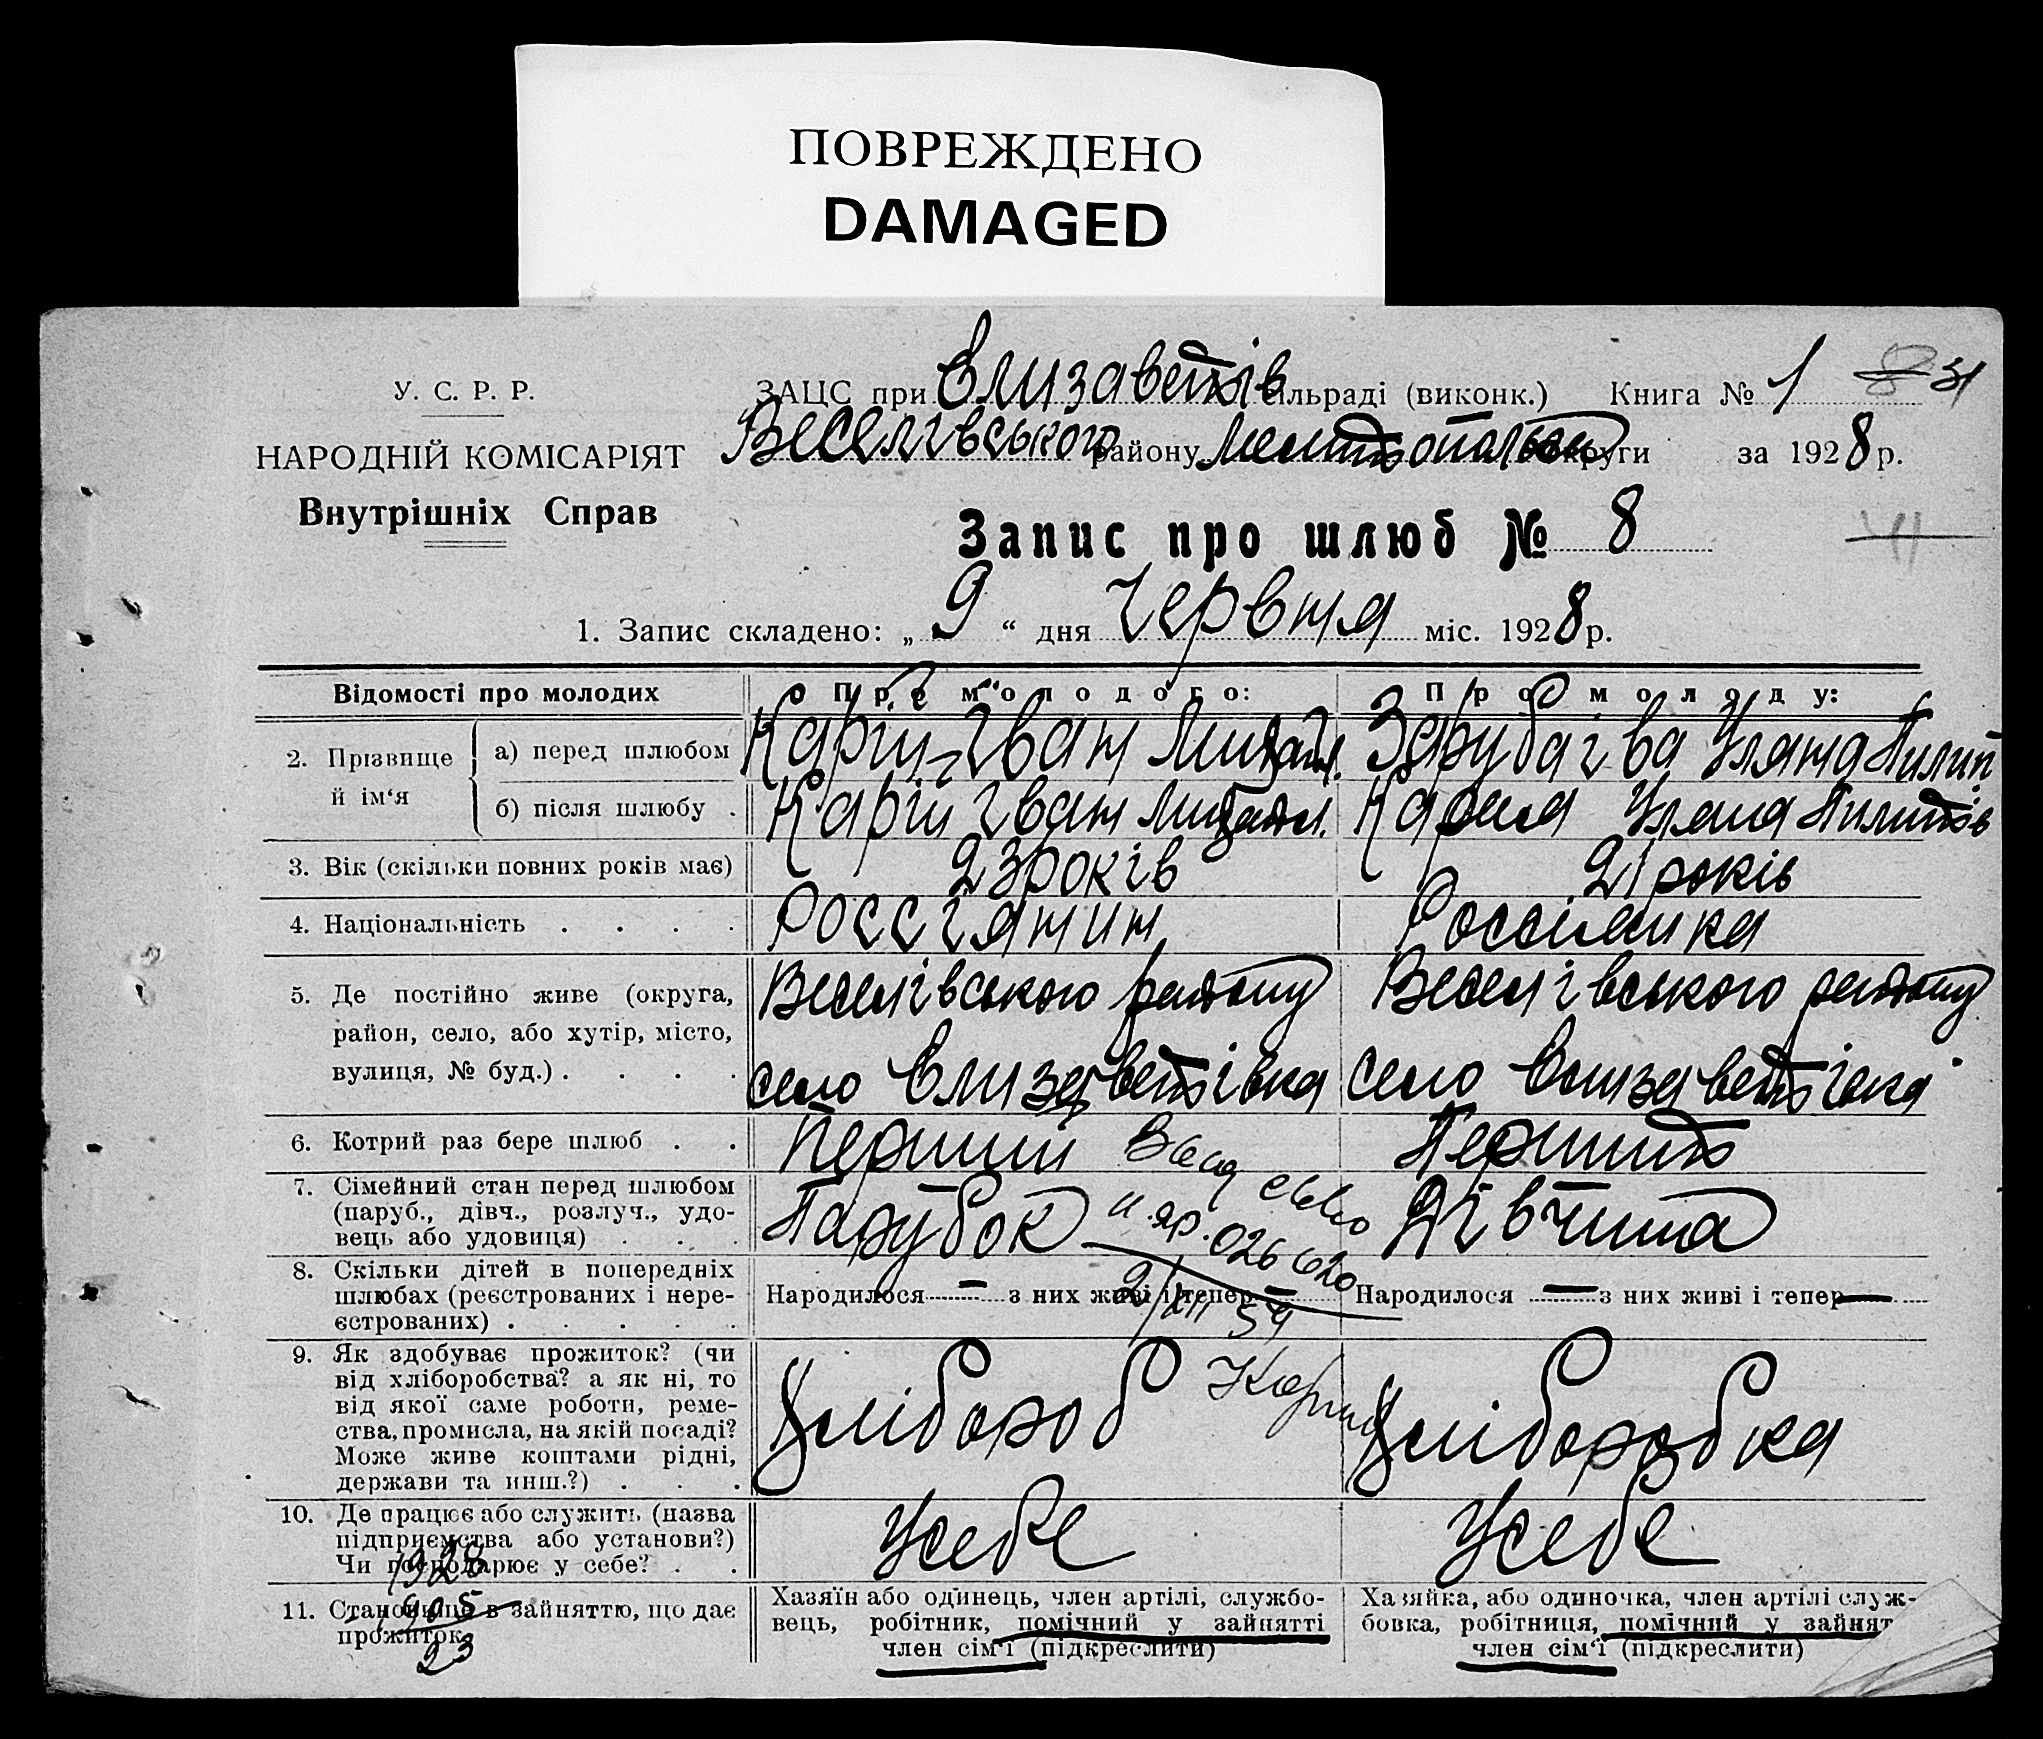 ПОВРЕЖДЕНО
DAMAGED
У. С. Р. Р.
НАРОДНІЙ КОМІСАРІЯТ
Внутрішніх Справ
ЗАЦС при Єлизаветів сільраді (виконк.) Книга № 1 31
Веселівського району Мелитопольської округи за 1928 р.
Запис про шлюб № 8
1. Запис складено: „ 9 “ дня Червня міс. 1928 р.
Відомості про молодих
Про молодого:
Про молоду:
2. Прізвище й ім‘я
а) перед шлюбом
Карій Іван Михайл.
Зарубаїва Уляна Пилип
б) після шлюбу .
Карій Іван Михайл.
Кария Уляна Пилипів
3. Вік (скільки повних років має)
23 років
21 років
4. Національність . . . .
Россіянин
Россіянка
5. Де постійно живе (округа,
район, село, або хутір, місто,
вулиця, № буд.) . . . .
Веселівського району
село Єлизаветівка
Веселівського району
село Єлизаветівка
6. Котрий раз бере шлюб . .
Перший
Перший
7. Сімейний стан перед шлюбом
(паруб., дівч., розлуч., удо-
вець або удовиця) . . .
Парубок
Дівчина
026620
8. Скільки дітей в попередніх
шлюбах (реєстрованих і нере-
єстрованих) . . . . .
Народилося — з них живі і тепер —
Народилося — з них живі і тепер —
9. Як здобуває прожиток? (чи
від хліборобства? а як ні, то
від якої саме роботи, реме-
ства, промисла, на якій посаді?
Може живе коштами рідні,
держави та инш.?) . . .
Хлібороб
Хліборобка
10. Де працює або служить (назва
підприємства або установи?)
Чи господарює у себе? . .
Усебе
Усебе
1928
1905
23
11. Становище в зайняттю, що дає
прожиток
Хазяїн або одинець, член артілі, службо-
вець, робітник, помічний у зайнятті
член сім‘ї (підкреслити)
Хазяйка, або одиночка, член артілі служ-
бовка, робітниця, помічний у зайнят
член сім‘ї (підкреслити)